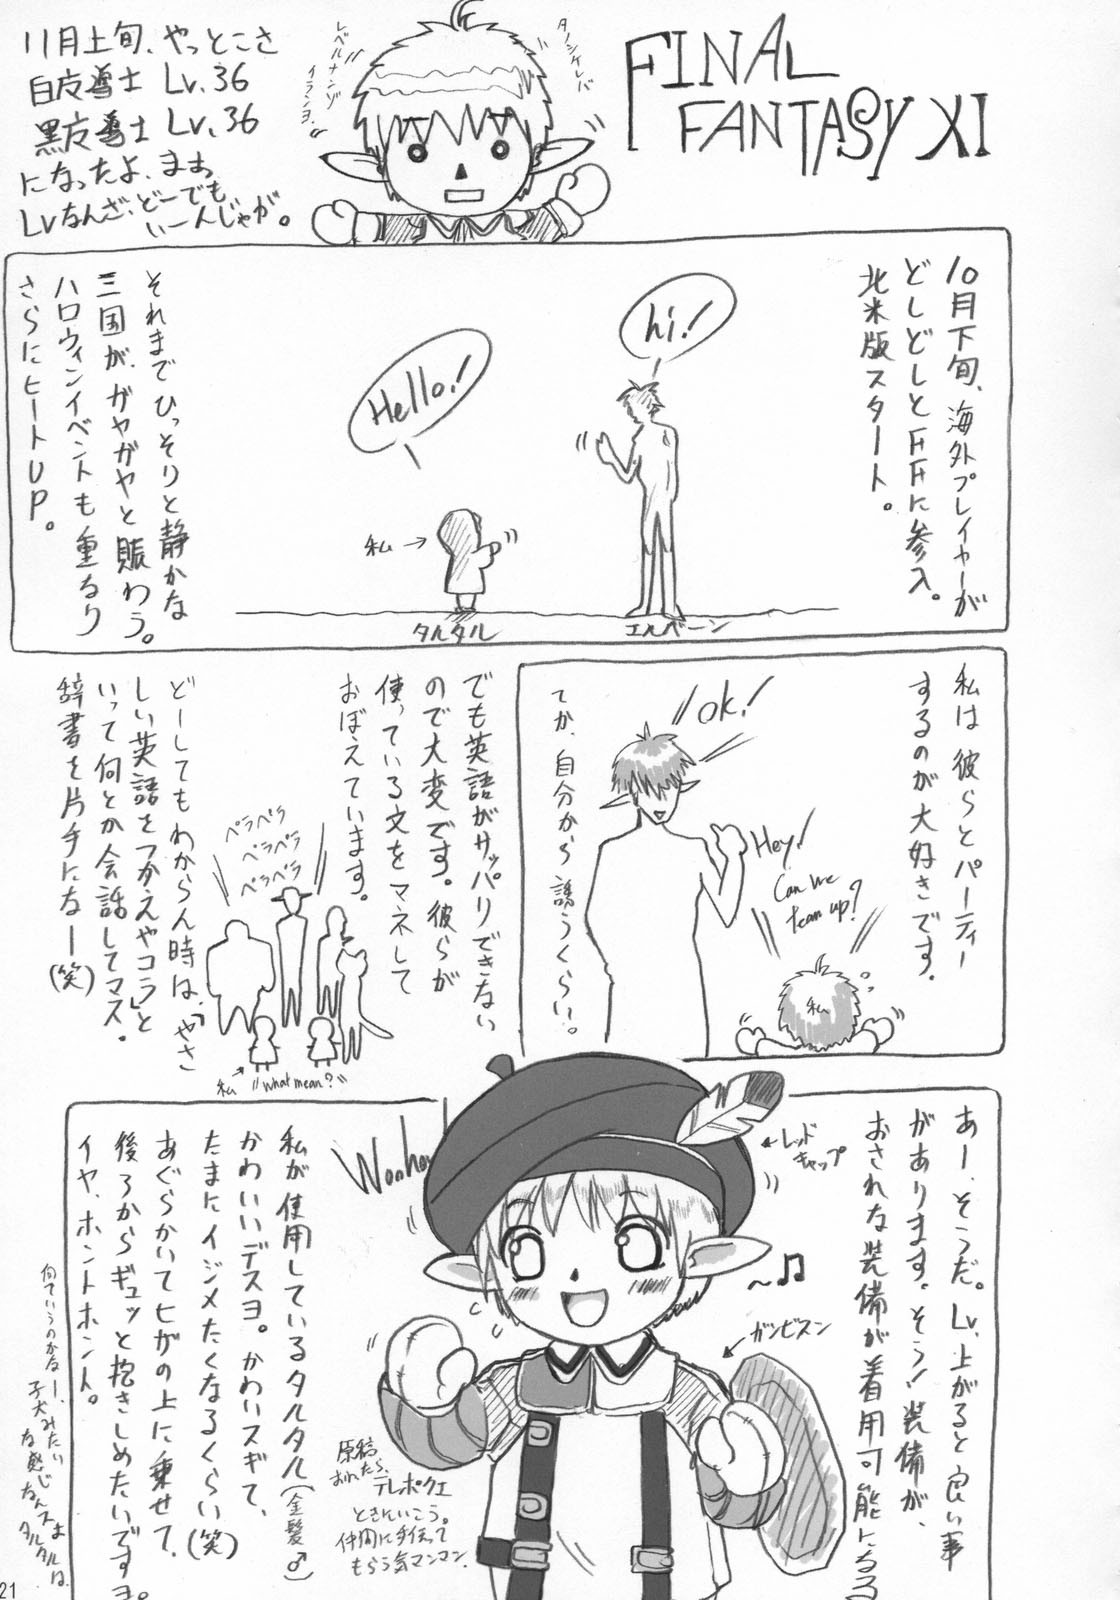 FINAL
FANTASY XI
11月上旬、やっとこさ
白魔導士 Lv.36
黒魔導士 Lv.36
になったよ、まぁ
Lvなんざ、どーでも
いーんじゃが。
タノシケレバ
レベルナンゾ
イランヨ。
10月下旬、海外プレイヤーが
どしどしとFFに参入。
北米版スタート。
hi!
Hello!
私→
タルタル
エルベーン
それまでひっそりと静かな
三国が、ガヤガヤと賑わう。
ハロウィンイベントも重なり
さらにヒートUP。
私は彼らとパーティー
するのが大好きです。
ok!
Hey!
Can we
team up?
私
てか、自分から誘うくらい。
でも英語がサッパリできない
ので大変です。彼らが
使っている文をマネして
おぼえています。
どーしてもわからん時は、「やさ
しい英語をつかえやコラ」と
いって何とか会話してマス。
辞書を片手になー(笑)
ペラペラ
ペラペラ
ペラペラ
私
"what mean?"
あー、そうだ。Lv.上がると良い事
があります。そう!装備が、
おされな装備が着用可能になる
←レッド
キャップ
ガンビスン
私が使用しているタルタル(金髪♂)
かわいいデスヨ。かわいスギて、
たまにイジメたくなるくらい(笑)
あぐらかいてヒザの上に乗せて、
後ろからギュッと抱きしめたいですヨ。
イヤ、ホントホント。
何ていうのかなー、
子犬みたい
な感じなんスよ
タルタルは、
原稿
おわったら、テレポクエ
ときにいこう。
仲間に手伝って
もらう気マンマン。
21